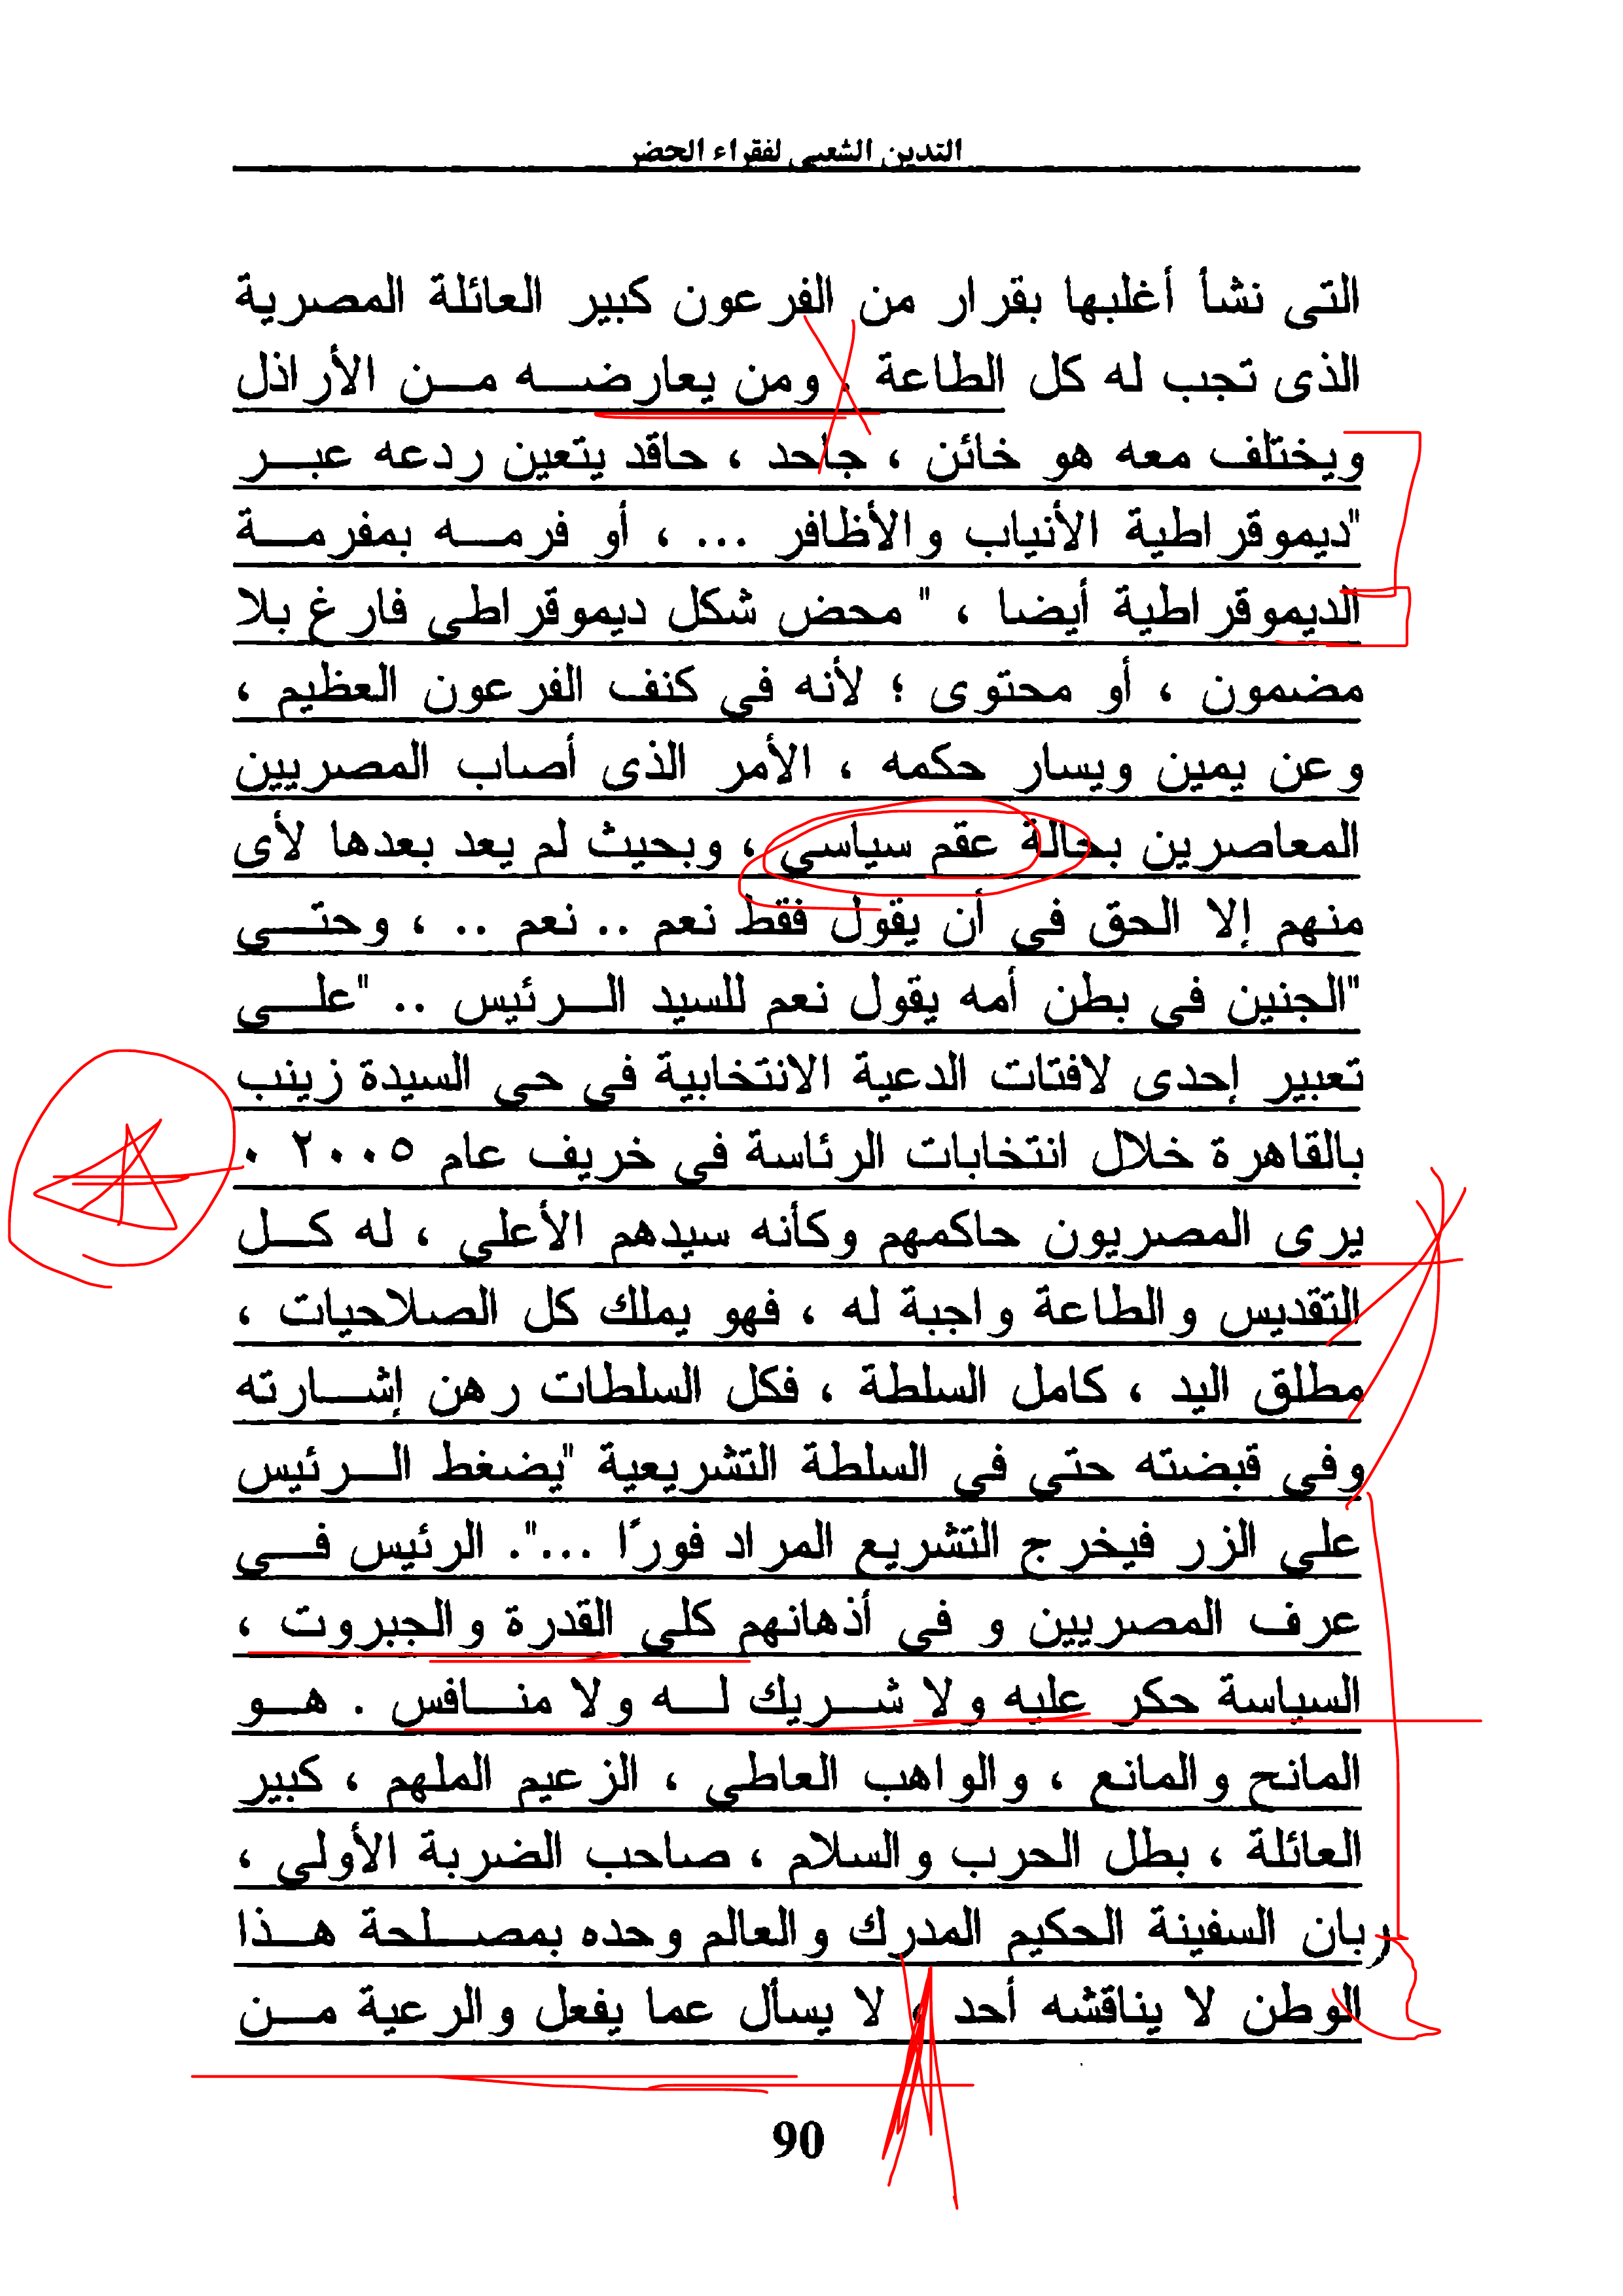 التدين الشعبي لفقراء الحضر
التى نشأ أغلبها بقرار من الفرعون كبير العائلة المصرية
الذى تجب له كل الطاعة . ومن يعارضــه مــن الأراذل
ويختلف معه هو خائن ، جاحد ، حاقد يتعين ردعه عبــر
"ديموقراطية الأنياب والأظافر ... ، أو فرمــه بمفرمــة
الديموقراطية أيضا ، " محض شكل ديموقراطي فارغ بلا
مضمون ، أو محتوى ؛ لأنه في كنف الفرعون العظيم ،
وعن يمين ويسار حكمه ، الأمر الذى أصاب المصريين
المعاصرين بحالة عقم سياسي ، وبحيث لم يعد بعدها لأى
منهم إلا الحق في أن يقول فقط نعم .. نعم .. ، وحتــي
"الجنين في بطن أمه يقول نعم للسيد الــرئيس .. "علــي
تعبير إحدى لافتات الدعية الانتخابية في حي السيدة زينب
بالقاهرة خلال انتخابات الرئاسة في خريف عام ٢٠٠٥ ٠
يرى المصريون حاكمهم وكأنه سيدهم الأعلي ، له كــل
التقديس والطاعة واجبة له ، فهو يملك كل الصلاحيات ،
مطلق اليد ، كامل السلطة ، فكل السلطات رهن إشــارته
وفي قبضته حتي في السلطة التشريعية "يضغط الــرئيس
علي الزر فيخرج التشريع المراد فورًا ...". الرئيس فــي
عرف المصريين و في أذهانهم كلي القدرة والجبروت ،
السياسة حكر عليه ولا شــريك لــه ولا منــافس . هــو
المانح والمانع ، والواهب العاطي ، الزعيم الملهم ، كبير
العائلة ، بطل الحرب والسلام ، صاحب الضربة الأولي ،
ربان السفينة الحكيم المدرك والعالم وحده بمصــلحة هــذا
الوطن لا يناقشه أحد ، لا يسأل عما يفعل والرعية مــن
90